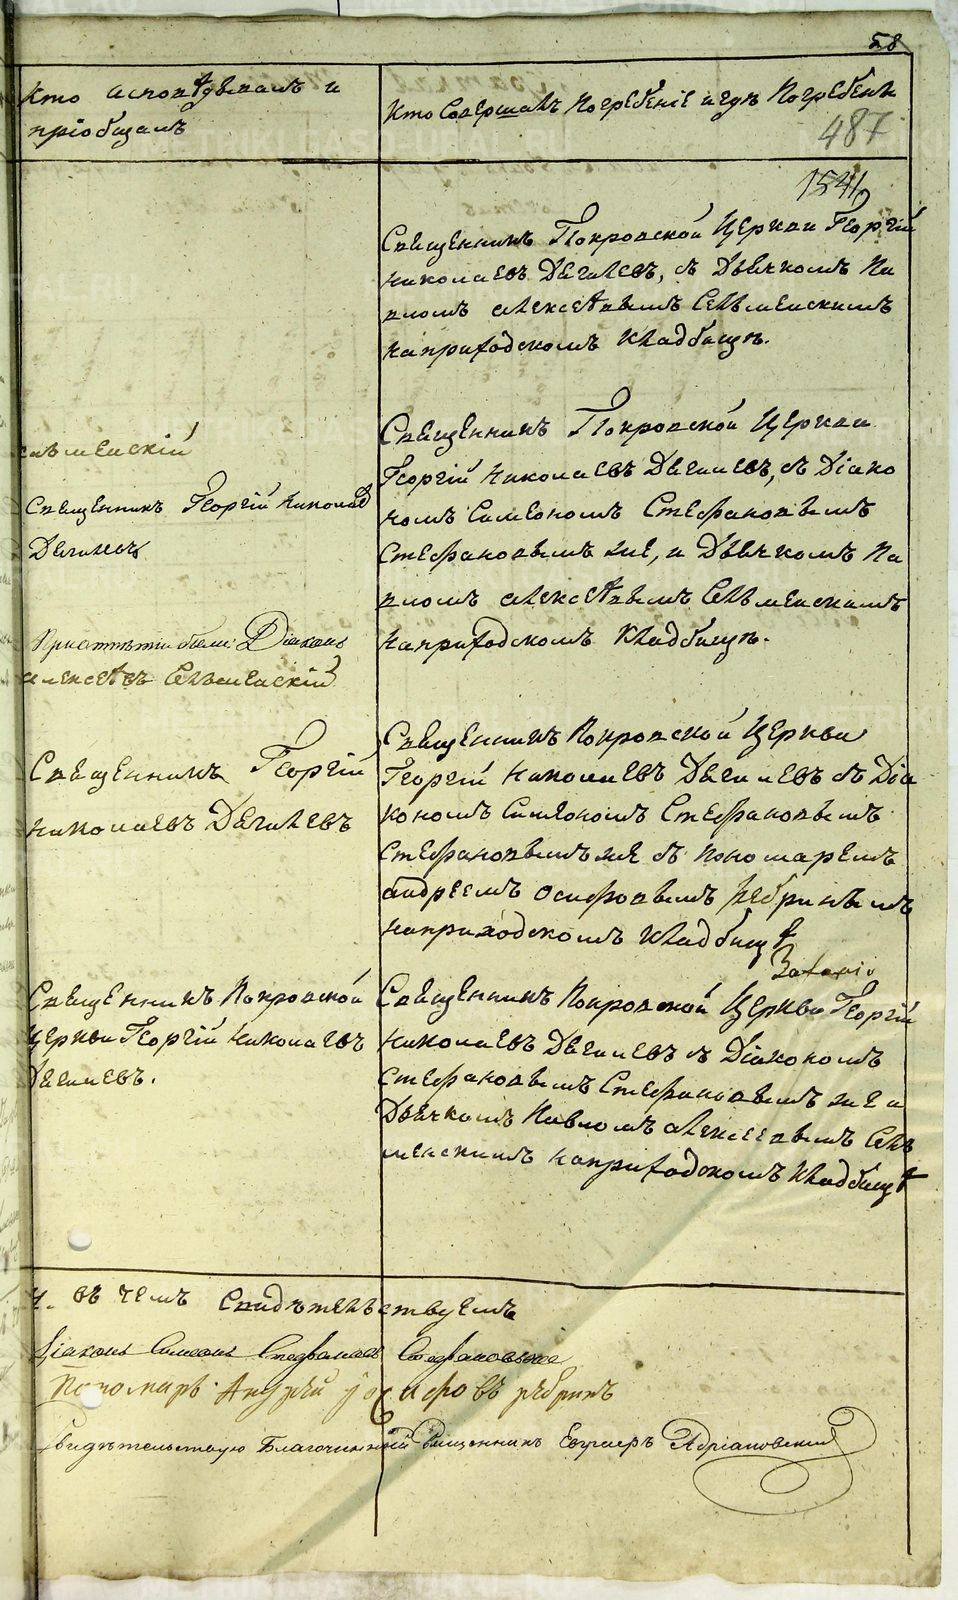 58
Кто исповѣдывалъ и
пріобщалъ
Кто Совершалъ Погребеніе и гдѣ Погребены
487
1541
Священникъ Покровской Церкви Георгій
Николаевъ Дягилевъ, съ Дьячкомъ Па
вломъ Алексѣевымъ Сельменскимъ
на приходскомъ Кладбищѣ.
сельменскій
Священникъ Георгій Николаев
Дягилевъ
При отпѣтіи были: Діаконъ
Алексѣевъ Сельменскій
Священникъ Покровской Церкви
Георгій Николаевъ Дягилевъ, съ Діако
номъ Симеономъ Стефановымъ
Стефановымъ же, и Дьячкомъ Па
вломъ Алексѣевымъ Сельменскимъ
на приходскомъ Кладбищѣ.
Священникъ Георгій
Николаевъ Дягилевъ
Священникъ Покровской Церкви
Георгій Николаевъ Дягилевъ съ Діа
кономъ Симеономъ Стефановымъ
Стефановымъ же съ пономаремъ
Андреемъ Осифовымъ Рябринымъ
на приходскомъ Кладбищѣ
Священникъ Покровской
Церкви Георгій Николаевъ
Дягилевъ.
Священникъ Покровской Церкви Георгій
Николаевъ Дягилевъ съ Діакономъ
Стефановымъ Стефановымъ же и
Дьячкомъ Павломъ Алексеевымъ Сель
менскимъ на приходскомъ Кладбищѣ
въ чемъ Свидѣтельствуемъ
Діаконъ Симеонъ Стефановъ Стефановъ же
Пономарь Андрей Іосифовъ Рябринъ
Свидѣтельствую Благочинный Священникъ Адріановскій